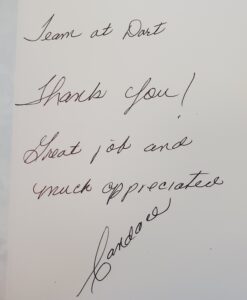 Team at Dart
Thank you!
Great job and
much appreciated
Candace